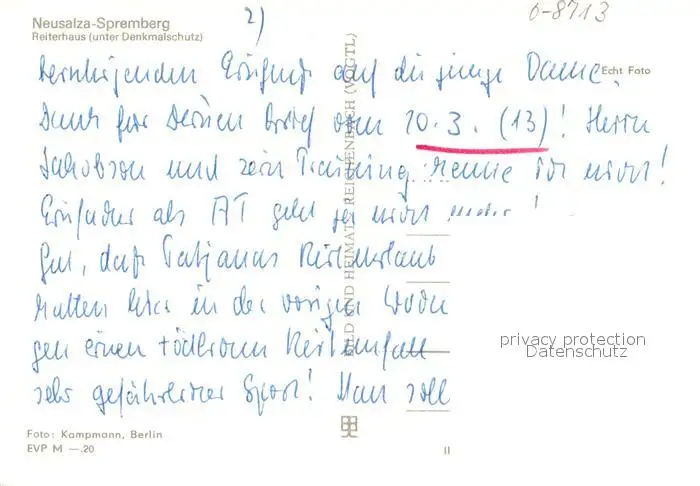 2)
0-8713
Neusalza-Spremberg
Reiterhaus (unter Denkmalschutz)
beruhigenden Einfluß auf die junge Dame.
Echt Foto
Dank für Deinen Brief vom 10.3. (13)! Herrn
Jakobson und sein Training kenne ich nicht!
Einfacher als AT geht es nicht mehr!
Gut, daß Tatjanas Reiturlaub
hatten hier in der vorigen Woche
gen einen tödlichen Reitunfall
sehr gefährlicher Sport! Man soll
BILD UND HEIMAT REICHENBACH (VOGTL)
privacy protection
Datenschutz
Foto: Kampmann, Berlin
EVP M —.20
II